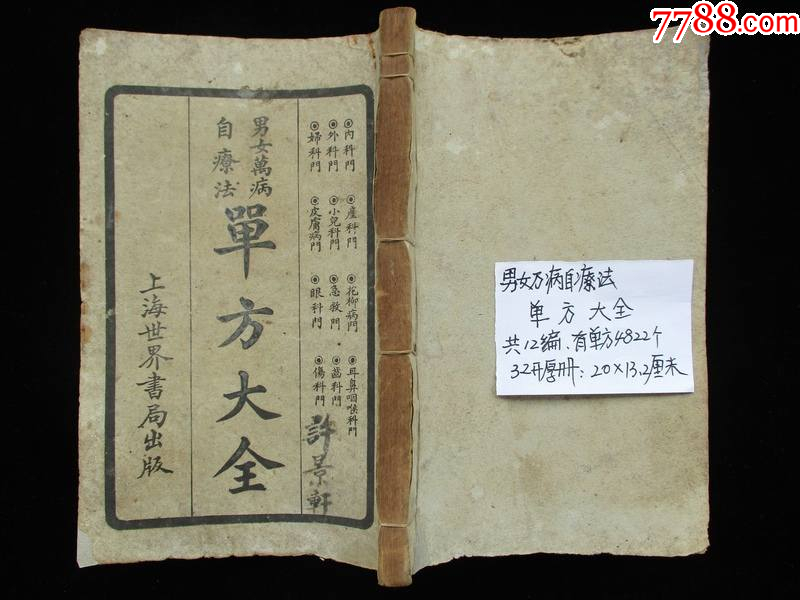 7788.com
◉內科門 ◉產科門 ◉花柳病門 ◉耳鼻咽喉科門
◉外科門 ◉小兒科門 ◉急救門 ◉齒科門
◉婦科門 ◉皮膚病門 ◉眼科門 ◉傷科門
許景軒
男女萬病
自療法
單方大全
上海世界書局出版
男女万病自療法
单方大全
共12编、有单方4822个
32开厚册:20×13.2厘米